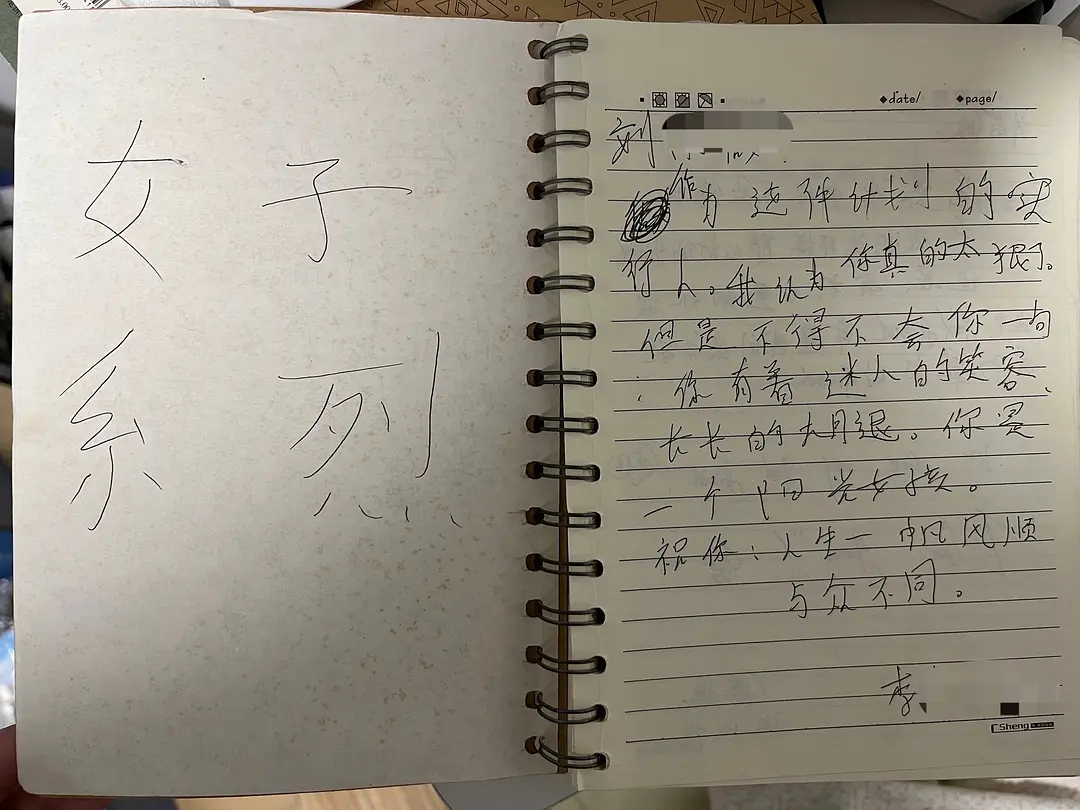 女 子
系 烈
date/ page/
刘
作为这件计划的实
行人。我认为你真的太狠了。
但是不得不夸你一句
：你有着迷人的笑容、
长长的大腿。你是
一个阳光女孩。
祝你：人生一帆风顺
与众不同。
李
Sheng